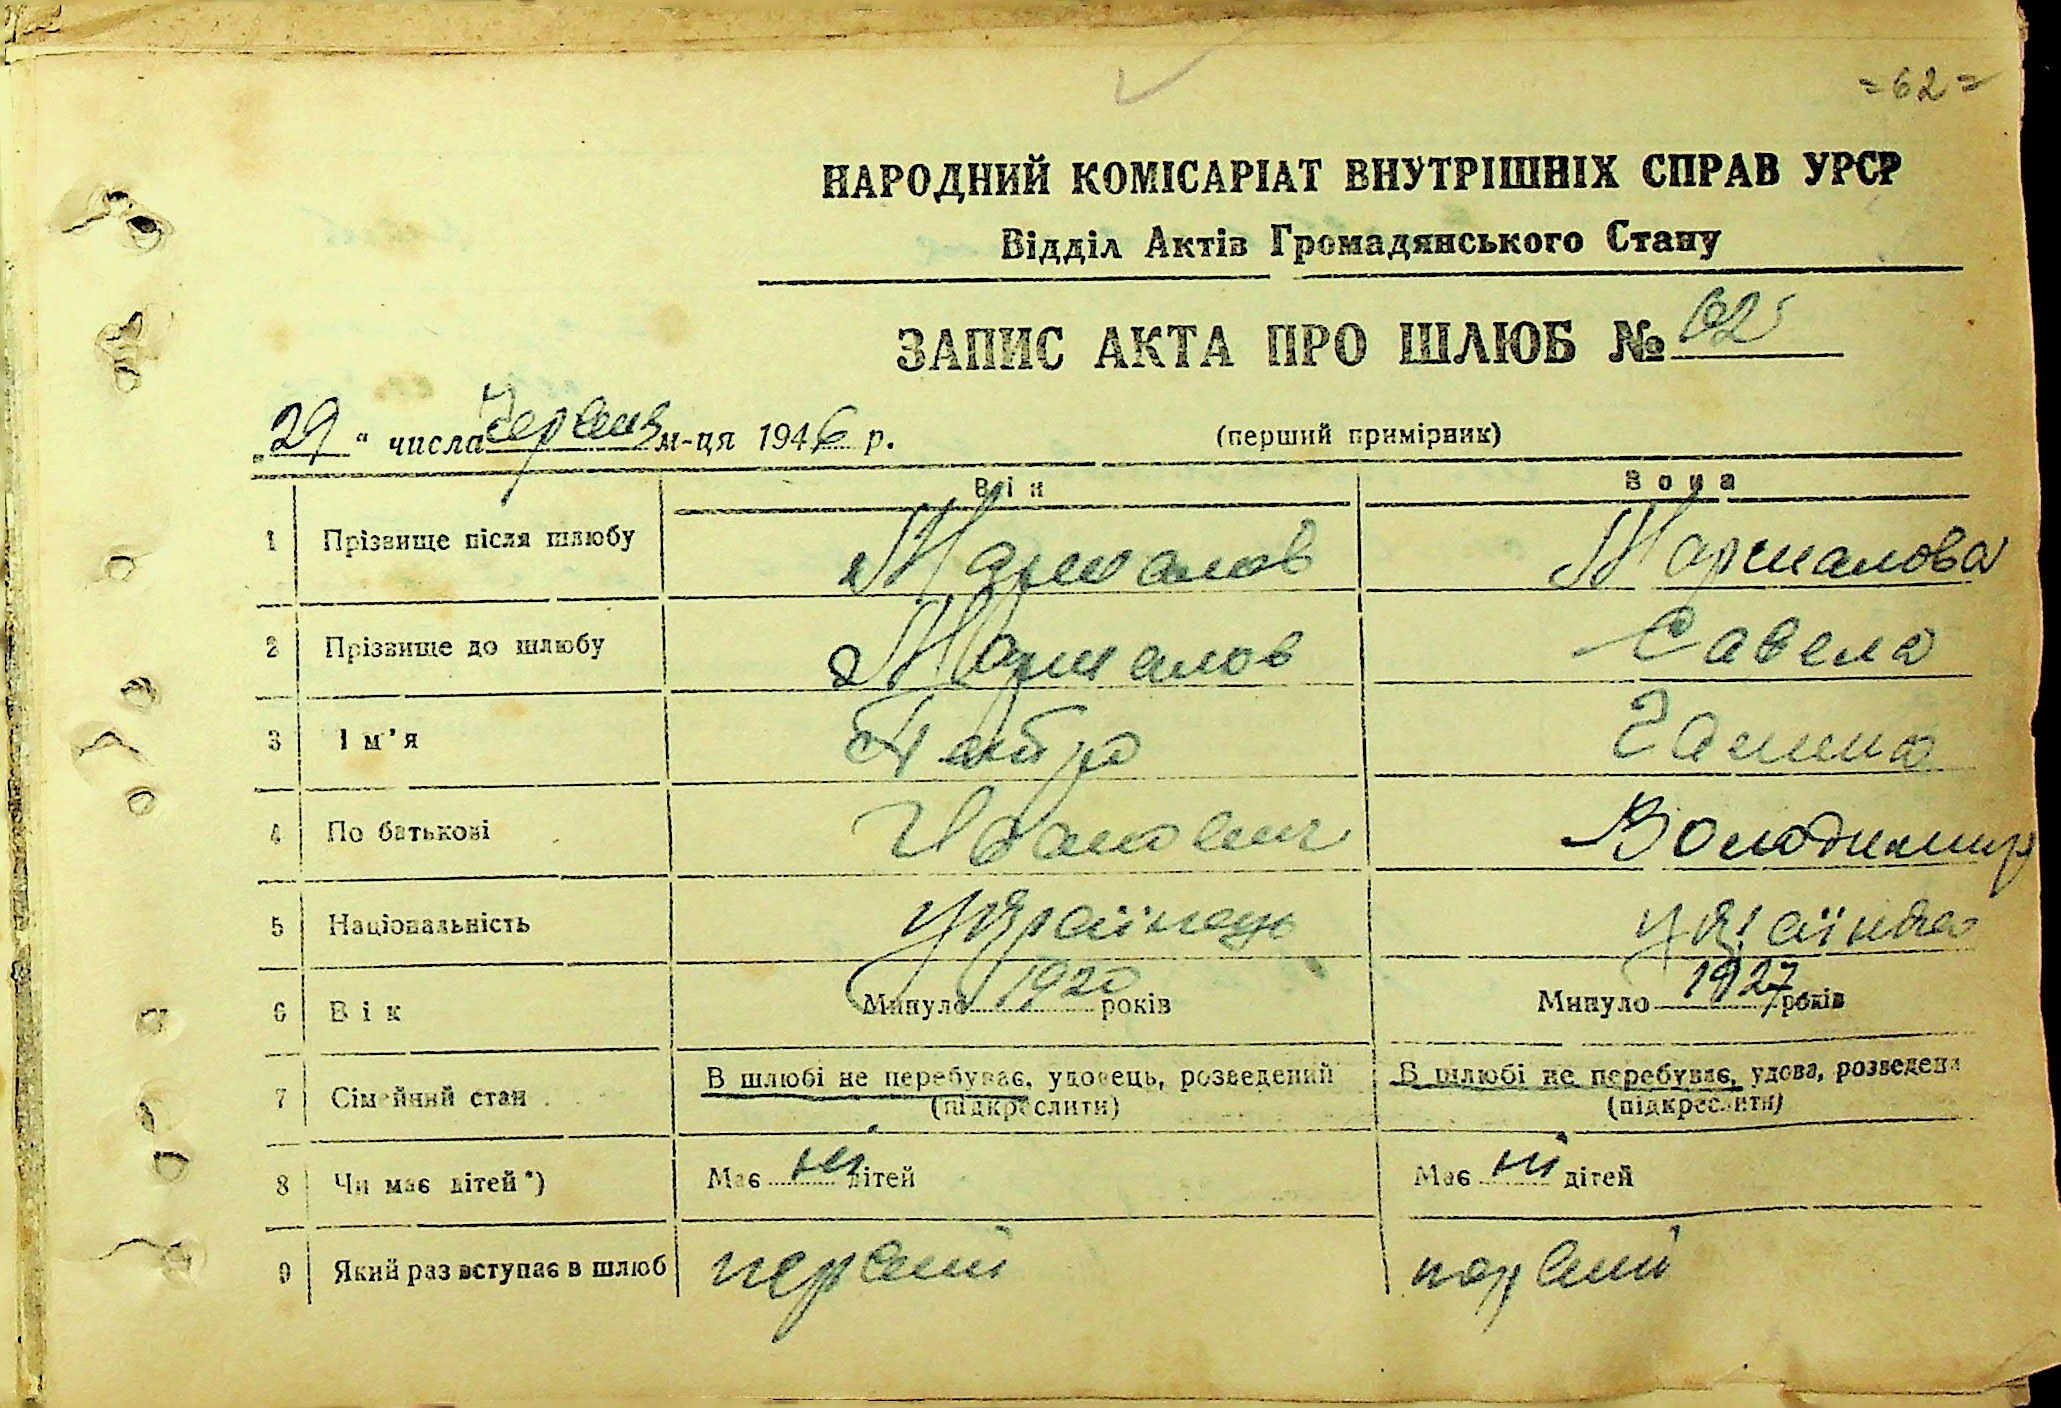 =62=
НАРОДНИЙ КОМІСАРІАТ ВНУТРІШНІХ СПРАВ УРСР
Відділ Актів Громадянського Стану
ЗАПИС АКТА ПРО ШЛЮБ № 62
„29" числа червня м-ця 1946 р. (перший примірник)
Він Вона
1 Прізвище після шлюбу Маршалов Маршалова
2 Прізвище до шлюбу Маршалов Савела
3 Ім'я Петро Галина
4 По батькові Иванович Володимир
5 Національність Українець Українка
6 Вік Минуло 1920 років Минуло 1927 років
7 Сімейний стан В шлюбі не перебуває, удовець, розведений В шлюбі не перебуває, удова, розведена
(підкреслити) (підкреслити)
8 Чи має дітей*) Має ні дітей Має ні дітей
9 Який раз вступає в шлюб первий первий